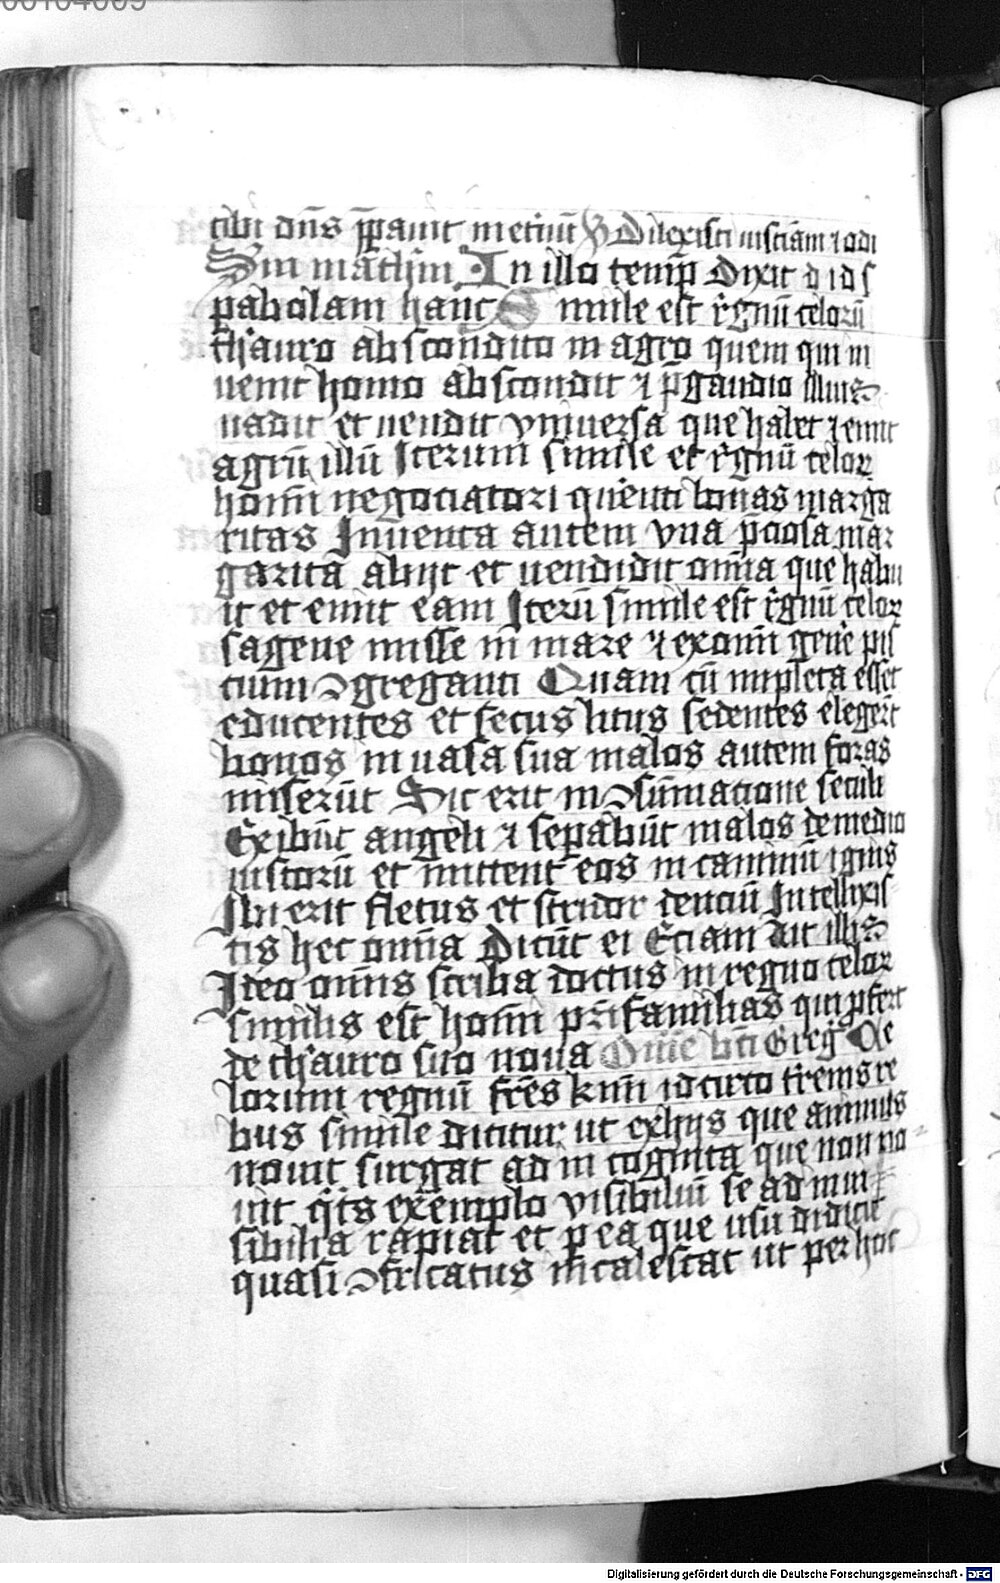 tibi dn̄s p̄pauit in et̄nū V Dilexisti iusticiam ⁊ odi
Sm̄ mathm̄ In illo temp̄ Dixit d ids
pabolam hanc Simile est r̄gnū celorū
th̄auro abscondito in agro quem qui in
uenit homo abscondit ⁊ p̄ gaudio illius
uadit et uendit vniuersa que habet ⁊ emit
agrū illū Iterum simile est r̄gnū celoꝝ
homī negociatori q̄renti bonas marga
ritas Inuenta autem vna p̄ciosa mar
garita abijt et uendidit omīa que habu
it et emit eam Iterū simile est r̄gnū celoꝝ
sagene misse in mare ⁊ ex omī gen̄e pis
cium ꝯgreganti Quam cū impleta esset
educentes et secus litus sedentes elegerūt
bonos in uasa sua malos autem foras
miserūt Sic erit in ꝯsūmacione seculi
Exibūt angeli ⁊ sepabūt malos de medio
iustorū et mittent eos in caminū ignis
Ibi erit fletus et stridor denciū Intellexis
tis hec omīa Dicūt ei Eciam ait illis
Ideo omīs scriba doctus in regno celoꝝ
similis est homī pr̄ifamilias qui ꝓfert
de th̄auro suo noua Greg Ce
lorum regnū fr̄es k̄mi idcirco terrenis re
bus simile dicitur ut ex hijs que animus
nouit surgat ad incognita que non no
uit q̄t̄s exemplo visibiliū se ad inui
sibilia rapiat et p ea que usu didicit
quasi ꝯfricatus incalescat ut per hoc
Digitalisierung gefördert durch die Deutsche Forschungsgemeinschaft - DFG